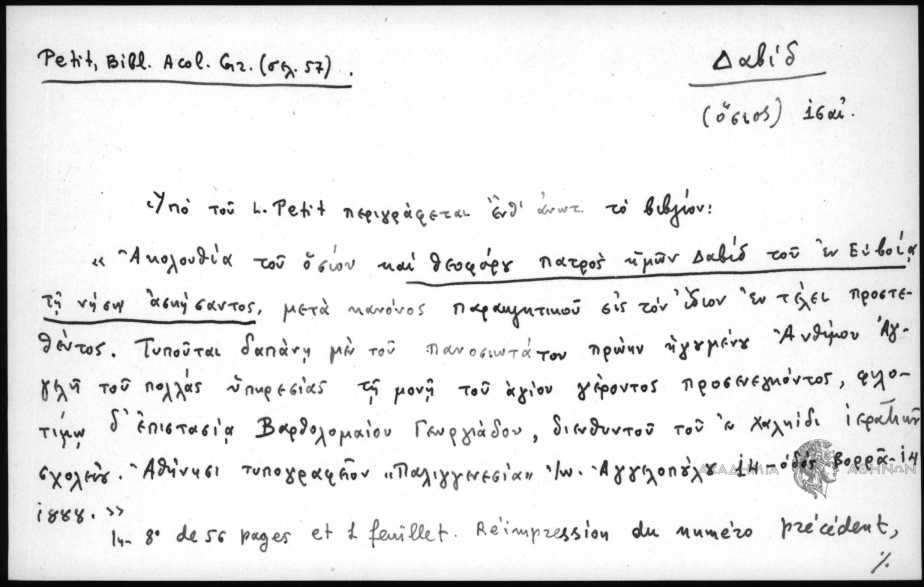 Petit, Bibl. Acol. Gr. (σελ. 57).
Δαβίδ
(ὅσιος)
Ὑπό τοῦ L. Petit περιγράφεται ἔνθ' ἀνωτ. τό βιβλίον:
« Ἀκολουθία τοῦ ὁσίου καί θεοφόρου πατρός ἡμῶν Δαβίδ τοῦ ἐν Εὐβοίᾳ
τῇ νήσῳ ἀσκήσαντος, μετά κανόνος παρακλητικοῦ εἰς τόν ἴδιον ἐν τέλει προστε-
θέντος. Τυποῦται δαπάνῃ μέν τοῦ πανοσιωτάτου πρώην ἡγουμένου Ἀνθίμου Ἀγ-
γελῆ τοῦ πολλάς ὑπηρεσίας τῇ μονῇ τοῦ ἁγίου γέροντος προσενεγκόντος, φιλο-
τίμῳ δ' ἐπιστασίᾳ Βαρθολομαίου Γεωργιάδου, διευθυντοῦ τοῦ ἐν Χαλκίδι ἱερατικοῦ
σχολείου. Ἀθήνησι τυπογραφεῖον «Παλιγγενεσία» Ἰω. Ἀγγελοπούλου 14-ὁδός Βορρᾶ-14
1888. »
In-8° de 56 pages et 1 feuillet. Réimpression du numéro précédent,
%
ΑΚΑΔΗΜΙΑ ΑΘΗΝΩΝ